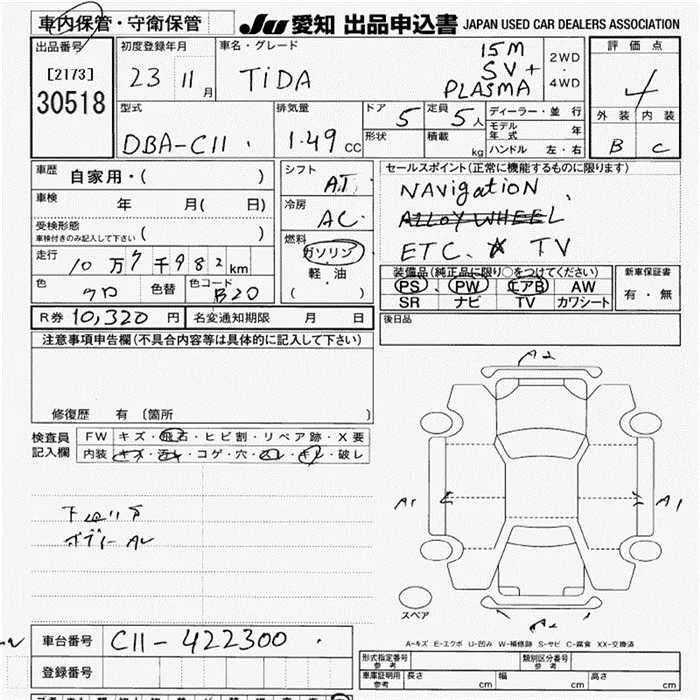 車内保管・守衛保管 JU 愛知 出品申込書 JAPAN USED CAR DEALERS ASSOCIATION
出品番号 初度登録年月 車名・グレード 評価点
[2173] 23 11月 TiDA 15M SV+ PLASMA 2WD・4WD 4
30518 外装 内装
型式 排気量 ドア 5 定員 5人 ディーラー・並行
DBA-C11 1.49 CC 形状 積載 kg モデル年式 年 B C
ハンドル 左・右
車歴 自家用・( ) シフト AT セールスポイント(正常に機能するものに限ります)
車検 年 月( 日) 冷房 AC NAVigatioN
受検形態 ALLOY WHEEL
車検付きのみ記入して下さい ( ) 燃料 ETC. ☆ TV
走行 10万7千982km ガソリン
軽・油
( )
装備品(純正品に限り○をつけてください) 新車保証書
色 クロ 色替 色コード B20 PS PW エアB AW 有・無
SR ナビ TV カワシート
R券 10,320円 名変通知期限 月 日 後日品
注意事項申告欄(不具合内容等は具体的に記入して下さい)
修復歴 有 (箇所
A2
検査員記入欄 FW キズ・飛石・ヒビ割・リペア跡・X要
内装 キズ・汚れ・コゲ・穴・スレ・キレ・破レ
A1 A1
下回リサ
ボデーAC
スペア
A2
A-キズ E-エクボ U-凹み W-補修跡 S-サビ C-腐食 XX-交換済
車台番号 C11-422300
登録番号
形式指定番号 参考 類別区分番号 参考
車庫証明用 参考 長さ cm 幅 cm 高さ cm